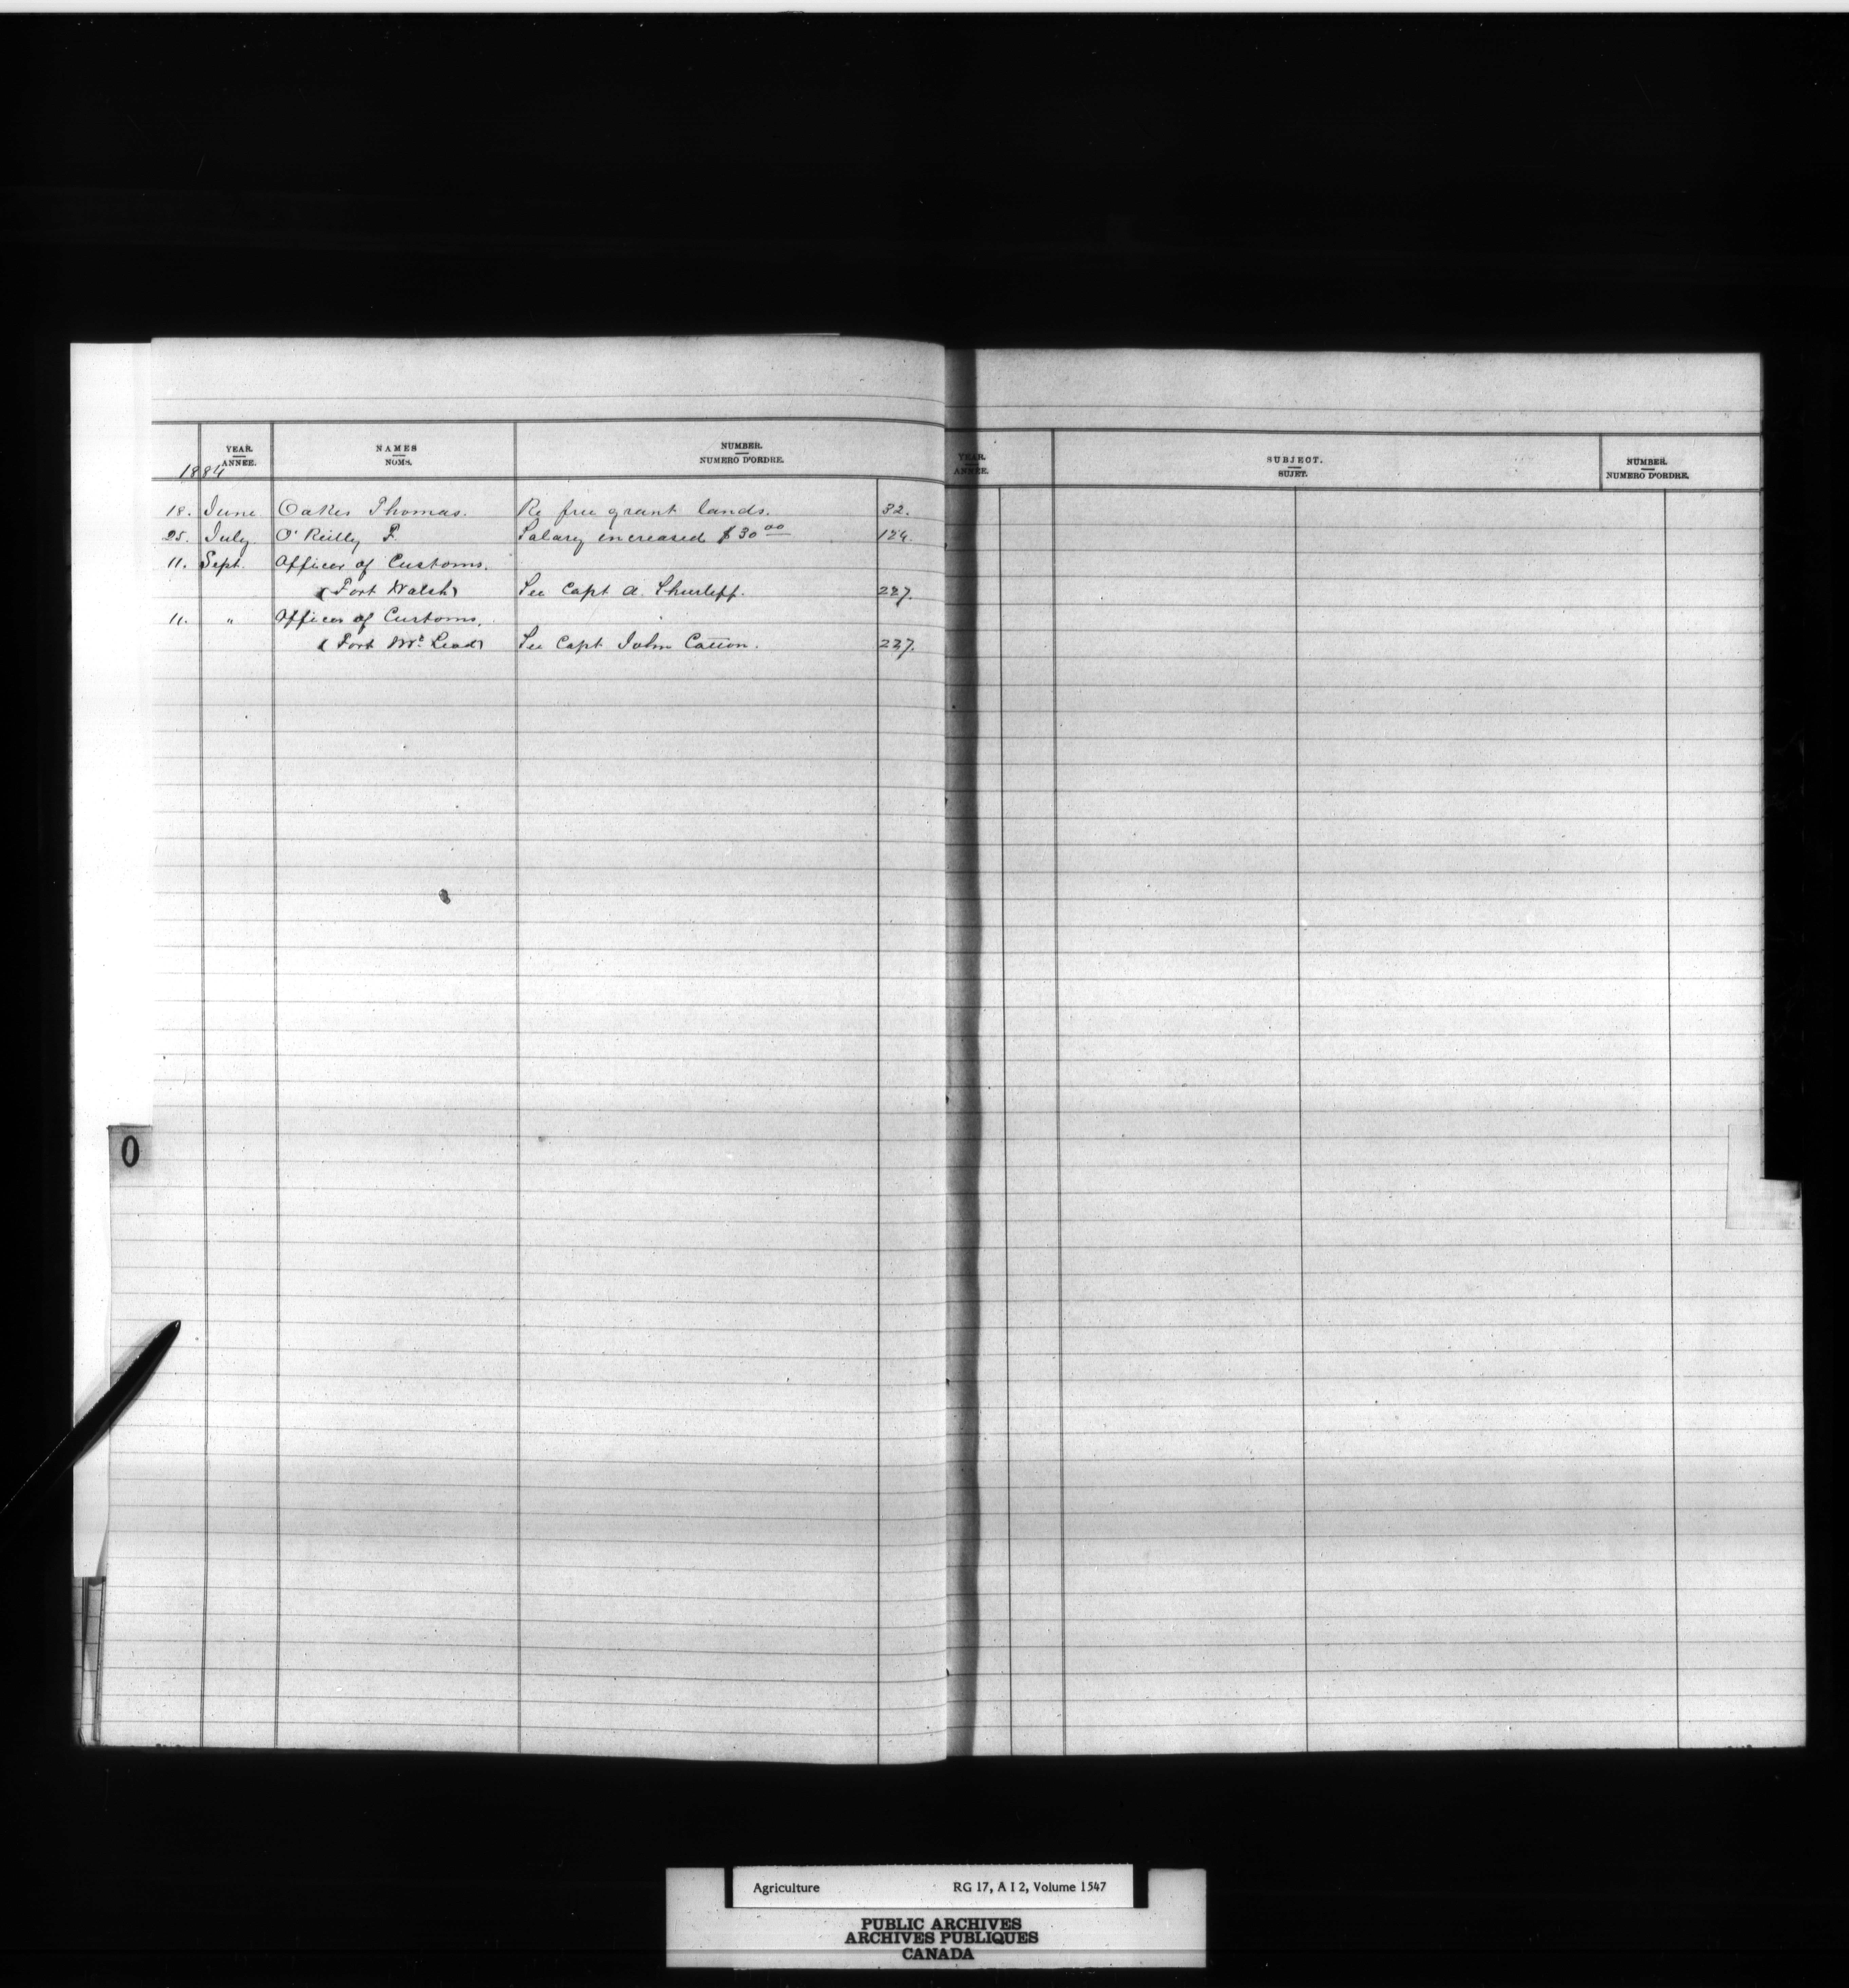 YEAR. NAMES NUMBER.
ANNÉE. NOMS. NUMERO D'ORDRE.
1884
18. June Oakes Thomas. Re free grant lands. 32.
25. July O'Reilly P. Salary increased $30 00 124.
11. Sept. Officer of Customs.
(Fort Walsh) See Capt A. Shurliff. 227.
11. " Officer of Customs.
(Fort Mc Leod) See Capt John 227.
YEAR. SUBJECT. NUMBER.
ANNÉE. SUJET. NUMERO D'ORDRE.
O
Agriculture RG 17, A I 2, Volume 1547
PUBLIC ARCHIVES
ARCHIVES PUBLIQUES
CANADA